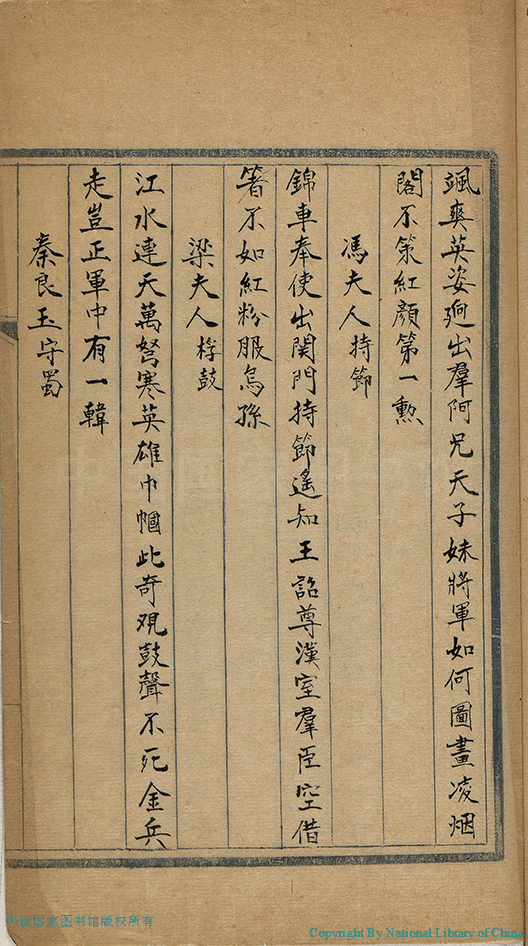 颯爽英姿迥出羣阿兄天子妹將軍如何圖畫凌烟
閣不策紅顏第一勲
馮夫人持節
錦車奉使出関門持節遙知王詔尊漢室羣臣空借
箸不如紅粉服烏孫
梁夫人桴鼓
江水連天萬弩寒英雄巾幗此奇观鼓聲不死金兵
走豈正軍中有一韓
秦良玉守蜀
中国国家图书馆版权所有
Copyright By National Library of China